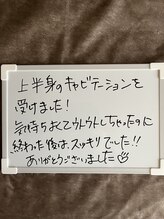 上半身のキャビテーションを
受けました！
気持ちよくてウトウトしちゃったのに
終わった後はスッキリでした!!
ありがとうございました